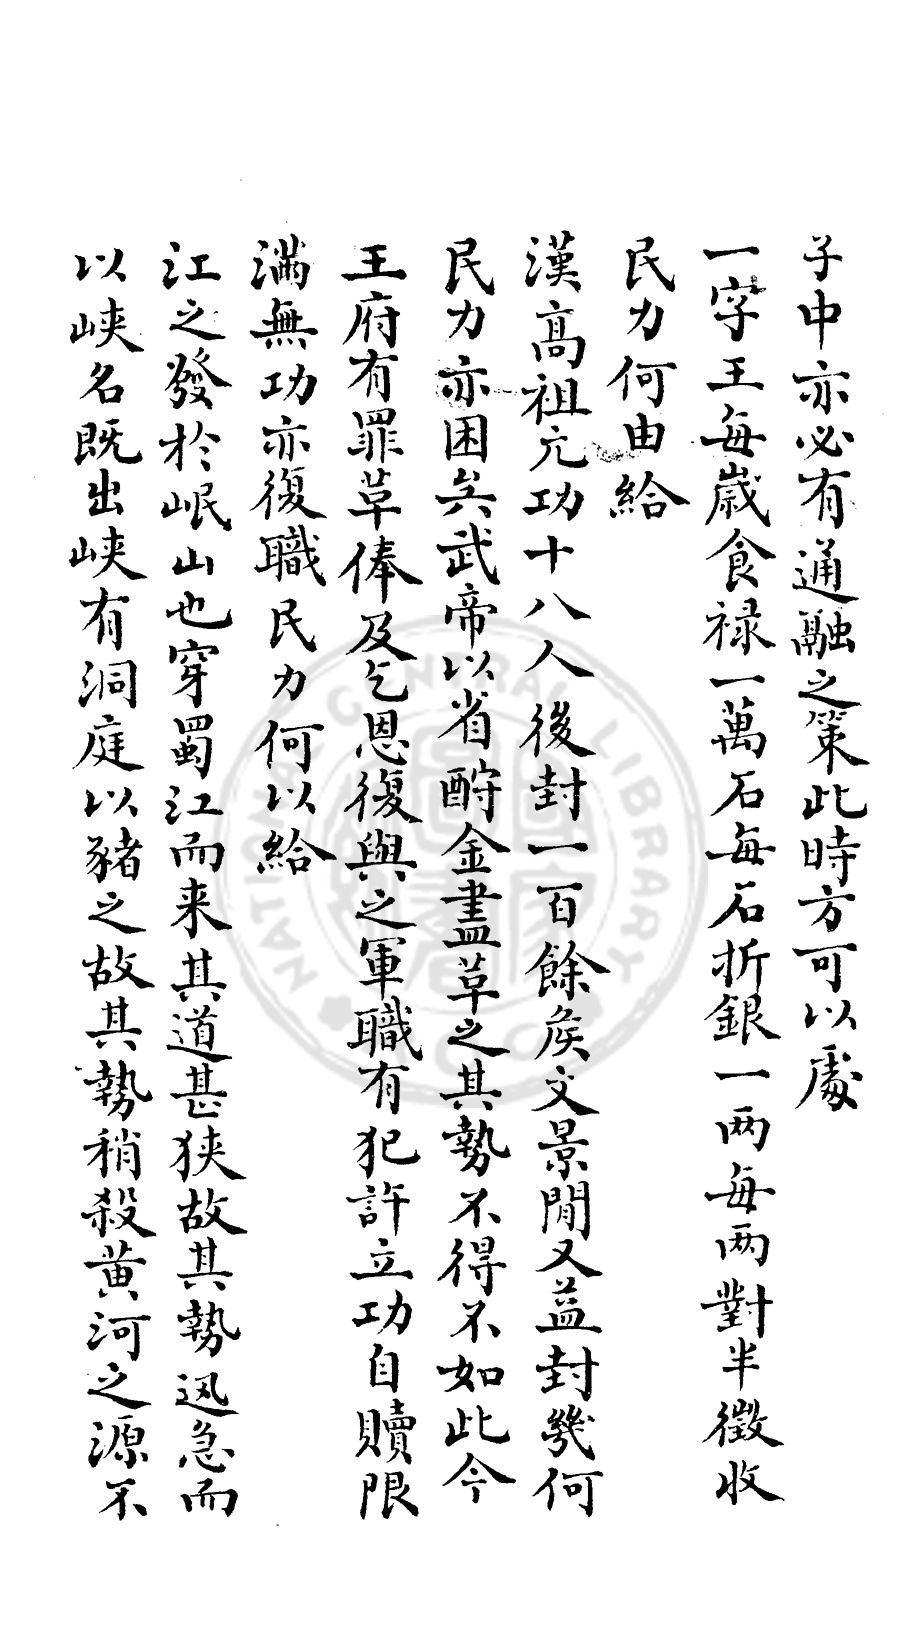 子中亦必有通融之策此時方可以處
一字王每歲食祿一萬石每石折銀一两每两對半徵收
民力何由給
漢高祖元功十八人後封一百餘矦文景閒又益封幾何
民力亦困矣武帝以省酎金盡草之其勢不得不如此今
王府有罪草俸及乞恩復與之軍職有犯許立功自贖限
滿無功亦復職民力何以給
江之發於岷山也穿蜀江而来其道甚狭故其勢迅急而
以峡名既出峡有洞庭以豬之故其勢稍殺黄河之源不
NATIONAL CENTRAL LIBRARY